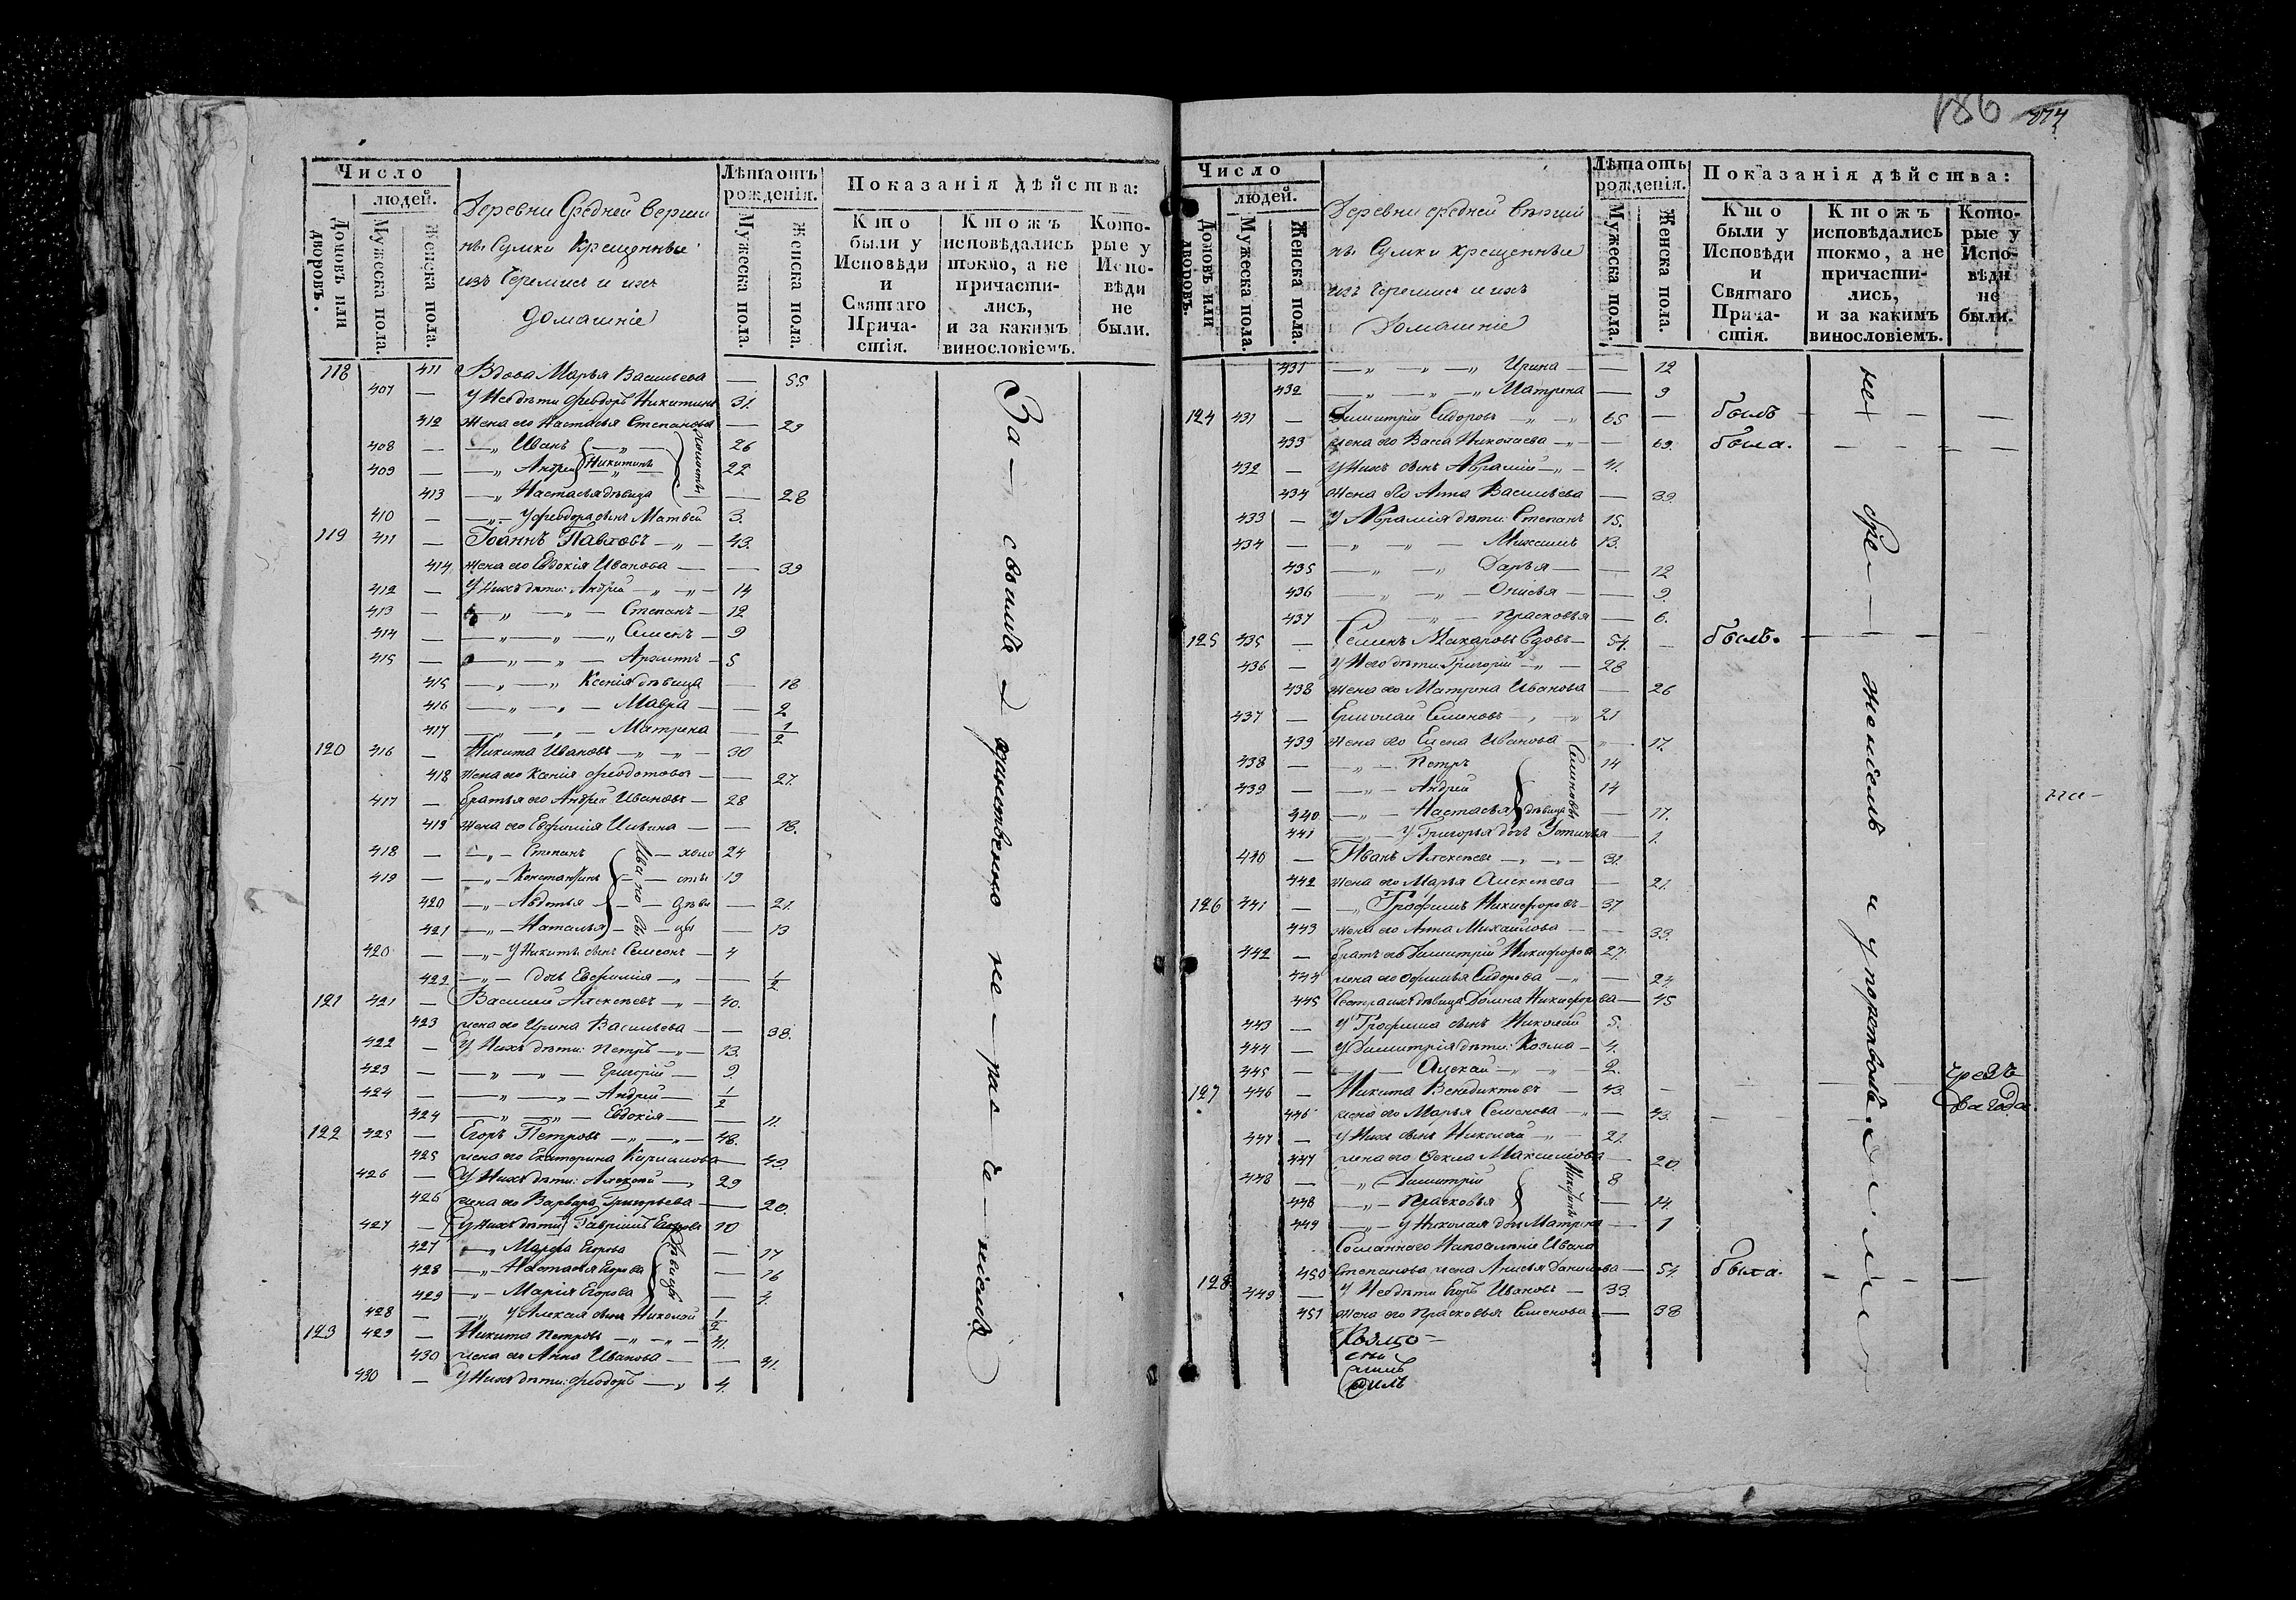 Число
людей.
Домовъ или дворовъ.
Мужеска пола.
Женска пола.
Деревни Средней Верши
нъ Сумки Крещенные
изъ Черемисъ и ихъ
домашніе
Лѣта отъ рожденія.
Мужеска пола.
Женска пола.
Показанія дѣйства:
Кто были у Исповѣди и Святаго Прича- стія.
Ктожъ исповѣдались токмо, а не причасти- лись, и за какимъ винословіемъ.
Кото- рые у Испо- вѣди не были.
118 411 Вдова Марья Васильева — 55
407 — У Нея дѣти Феодоръ Никитинъ 31.
412 Жена его Настасья Степанова — 29
408 — —„ Иванъ —„— 26
409 — —„ Андрей Никитины 22
413 —„ Настасья дѣвица — 28
410 — —„— У Феодора сынъ Матвей 3.
119 411 — Іоаннъ Павловъ —„— 43.
414 жена его Евдокія Иванова — 39
412 — У Нихъ дѣти: Андрей —„—„— 14
413 — —„—„— Степанъ — 12
414 — —„—„—„ Семенъ — 9
415 — —„—„— 5
415 —„—„ Ксенія дѣвица — 18
416 —„—„— Мавра — 2
417 —„—„— Матрена — 1/2
120 416 — Никита Ивановъ —„—„— 30
418 жена его Ксенія Феодотова — 27.
417 — братья его Андрей Ивановъ — 28
419 жена его Евфимія Ильина — 18.
418 — —„— Степанъ — холо 24
419 — —„— Константинъ — сты 19
Ивановы
420 —„— Авдотья — дѣви — 21.
421 —„— Наталья — цы — 13
420 — —„— У Никиты сынъ Семенъ — 4
422 —„— дочь Евфимія —„— 1/2
121 421 — Василий Алексѣевъ —„— 40.
423 жена его Ирина Васильева — 38.
422 — У Нихъ дѣти: Петръ —„— 13.
423 — —„—„— Григорій — 9.
424 — —„—„— Андрей — 1/2
424 —„—„— Евдокія — 11.
122 425 — Егоръ Петровъ —„—„— 48.
425 жена его Екатерина Кириллова — 49.
426 — У Нихъ дѣти: Алексѣй — 29
426 жена его Варвара Григорьева — 20.
427 — У Нихъ дѣти Гавриилъ Егоровъ 10
427 —„ Марфа Егорова — 17
428 —„— Настасья Егорова — 16
429 —„— Марія Егорова — 4.
Дѣвицы
428 — —„ У Алексѣя сынъ Николай 1/2
123 429 — Никита Петровъ —„—„— 41.
430 жена его Анна Иванова — 41.
430 — У Нихъ дѣти: Феодоръ —„ 4.
За — своимъ единственно не — ра — че — ніемъ
186
874
Число
людей.
Домовъ или дворовъ.
Мужеска пола.
Женска пола.
Деревни средней Верши
нъ Сумки крещенные
изъ Черемисъ и ихъ
Домашніе
Лѣта отъ рожденія.
Мужеска пола.
Женска пола.
Показанія дѣйства:
Кто были у Исповѣди и Святаго Прича- стія.
Ктожъ исповѣдались токмо, а не причасти- лись, и за какимъ винословіемъ.
Кото- рые у Испо- вѣди не были.
431 —„—„—„ Ирина — 12
432 —„—„—„ Матрена — 9
124 431 — Димитрій Сидоровъ —„—„ 65 — былъ — — —
433 жена его Васса Николаева —„— 69. была. — — —
432 — У Нихъ сынъ Абрамій —„— 41.
434 жена его Анна Васильева — 39.
433 — У Абрамія дѣти: Степанъ 15.
434 — —„—„— Михаилъ 13.
435 —„—„ Дарья — 12
436 —„—„— Онисья — 9.
437 —„—„— Прасковья — 6.
125 435 — Семенъ Макаровъ вдовъ — 54. — былъ. — — —
436 — У Него дѣти Григорій —„— 28
438 жена его Матрена Иванова — 26
437 — Ермолай Семеновъ —„—„ 21
439 жена его Елена Иванова — 17.
438 — —„— Петръ 14
439 — —„— Андрей 14
Семеновы
440 —„— Настасья дѣвица — 17.
441 —„— У Григорья дочь Устинья — 1.
440 — Иванъ Алексѣевъ —„—„— 31.
442 жена его Марья Алексѣева — 21.
126 441 — —„ Трофимъ Никифоровъ — 37
443 жена его Анна Михайлова — 33.
442 — братъ его Димитрій Никифоровъ 27.
444 жена его Офимья Сидорова —„— 24.
445 Сестра ихъ дѣвица Домна Никифорова — 45
443 — У Трофима сынъ Николай 5.
444 — У Димитрія дѣти: Козма — 4.
445 — — Алексѣй —„—„ 2.
127 446 — Никита Венедиктовъ — 43. — — — чрезъ
446 жена его Марья Семенова —„— 43. — два года.
447 — У Нихъ сынъ Николай —„— 21.
447 жена его Фекла Максимова — 20.
448 — —„— Димитрій 8
448 —„— Прасковья — 14.
Никитины
449 —„— У Николая дочь Матрена — 1
Сосланнаго На поселеніе Ивана
128 450 Степанова жена Анисья Данилова — 54. была. — — —
449 — У Нея дѣти Егоръ Ивановъ — 33.
451 жена его Прасковья Семенова — 38
на —